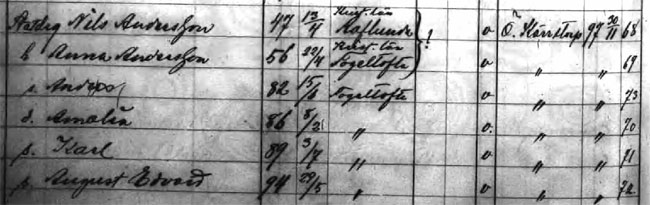 Nils Andersson 47 13/4 Krist. län Raflunda } ! o Ö. Kärrstorp 97 30/11 68
h Anna Andersson 56 22/4 Krist. län Fogeltofta o " " 69
s. Anders 82 15/6 Fogeltofta o " " 73
d. Amalia 86 8/2 " o. " " 70
s. Karl 89 3/7 " o " " 71
s. August Edvard 94 29/5 " o " " 72